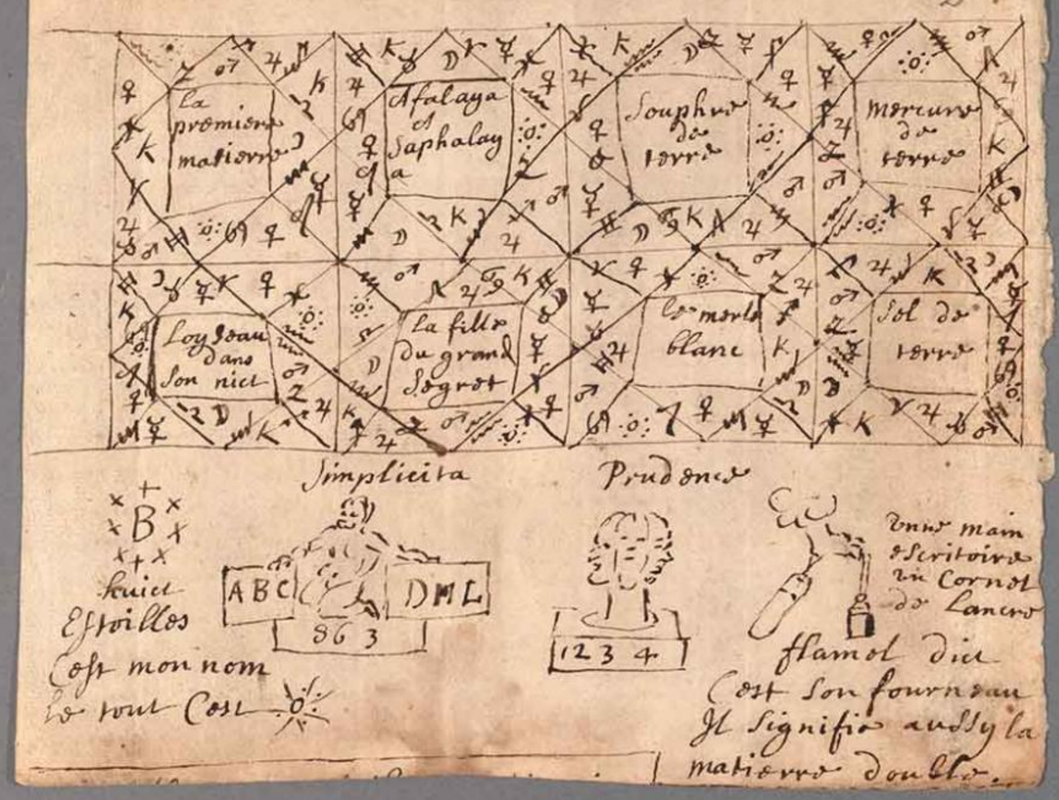 la
premiere
matierre
Afalaya
et
Saphalay
a
Souphre
de
terre
mercure
de
terre
Loyseau
dans
son nict
La fille
du grand
Segret
le merle
blanc
Sel de
terre
Simplicita
Prudence
B
huict
Estoilles
Cest mon nom
Le tout Cest
A B C
D M L
8 6 3
1 2 3 4
unne main
escritoire
un Cornet
de Lancre
flamel dict
Cest son fourneau
Il signifie aussy la
matierre double.